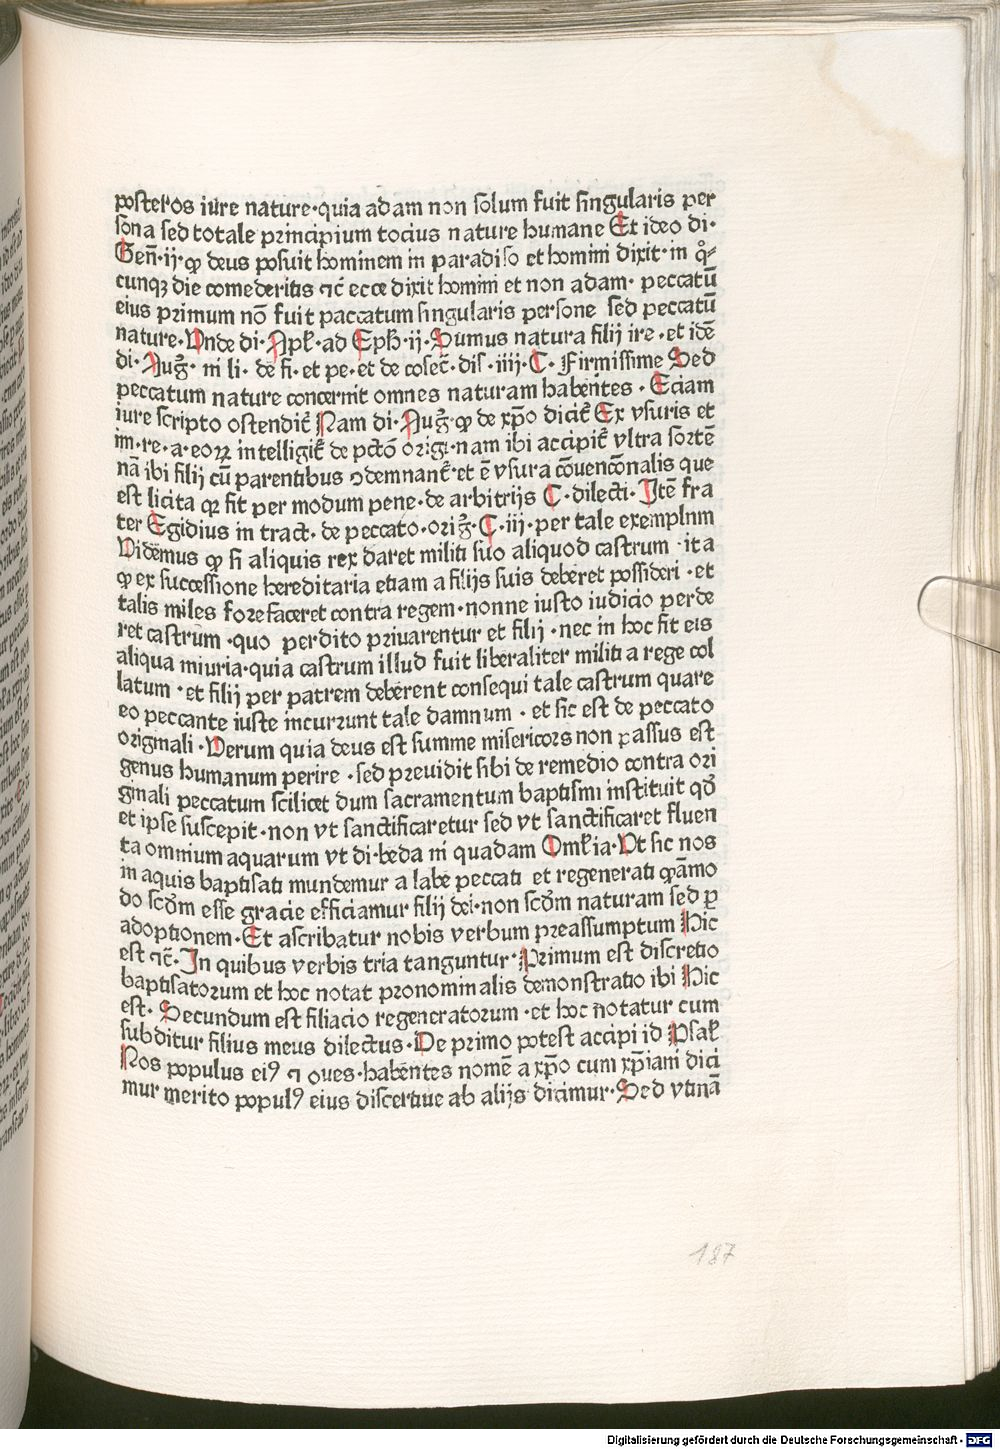 posteros iure nature·quia adam non solum fuit singularis per
sona sed totale principium tocius nature humane Et ideo di·
Gen̄·ij·ꝙ deus posuit hominem in paradiso et homini dixit·in qͦ⸗
cunqꝫ die comederitis ⁊c̄ ecce dixit homini et non adam· peccatū
eius primum nō fuit paccatum singularis persone sed peccatū
nature·Vnde di·Apl̄·ad Eph̄·ij·Sumus natura filij ire·et idē
di·Auḡ· in li· de fi·et pe·et de cōsec̄·dis̄·iiij·C·Firmissime Sed
peccatum nature concernit omnes naturam habentes·Eciam
iure scripto ostendit̄ Nam di·Auḡ·ꝙ de xp̄o dicit̄ Ex vsuris et
im·re·a·eoꝝ intelligit̄ de pctō origi·nam ibi accipit̄ vltra sortē
nā ibi filij cū parentibus ꝯdemnant̄·et ē vsura cōuencōnalis que
est licita ꝙ fit per modum pene·de arbitrijs C·dilecti·Itē fra
ter Egidius in tract·de peccato·oriḡ·C·iij·per tale exemplnm
Videmus ꝙ si aliquis rex daret militi suo aliquod castrum ·ita
ꝙ ex successione hereditaria etiam a filijs suis deberet possideri·et
talis miles forefaceret contra regem·nonne iusto iudicio perde
ret castrum·quo perdito priuarentur et filij·nec in hoc fit eis
aliqua iniuria·quia castrum illud fuit liberaliter militi a rege col
latum·et filij per patrem deberent consequi tale castrum quare
eo peccante iuste incurrunt tale damnum·et sic est de peccato
originali·Verum quia deus est summe misericors non passus est
genus humanum perire·sed preuidit sibi de remedio contra ori
ginali peccatum scilicet dum sacramentum baptismi instituit qđ
et ipse suscepit·non vt sanctificaretur sed vt sanctificaret fluen
ta omnium aquarum vt di·beda in quadam Omel̄ia·Vt sic nos
in aquis baptisati mundemur a labe peccati et regenerati qāmo
do scđm esse gracie efficiamur filij dei·non scđm naturam sed ꝑ
adoptionem·Et ascribatur nobis verbum preassumptum Hic
est ⁊c̄·In quibus verbis tria tanguntur·Primum est discretio
baptisatorum et hoc notat pronominalis demonstratio ibi Hic
est·Secundum est filiacio regeneratorum·et hoc notatur cum
subditur filius meus dilectus·De primo potest accipi id Psal̄
Nos populus eiꝰ ⁊ oues·habentes nomē a xp̄o cum xp̄iani dici
mur merito populꝰ eius discretiue ab alijs dicimur·Sed vtinā
187
Digitalisierung gefördert durch die Deutsche Forschungsgemeinschaft - DFG